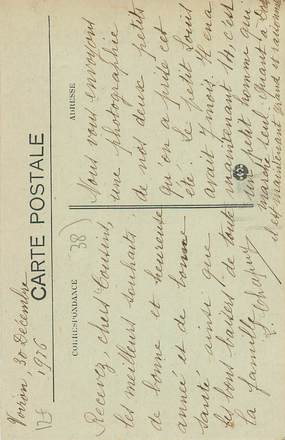 Voiron, 30 Décembre
1926
CARTE POSTALE
CORRESPONDANCE
ADRESSE
38)
Recevez, chers Cousins,
les meilleurs souhaits
de bonne et heureuse
année et de bonne
santé ainsi que
les bons baisers de toute
la famille
Chapuy
Nous vous envoyons
une photographie
de nos deux petits
qu'on a prise cet
été. Le petit Louis
avait 7 mois. Il en a
maintenant 14, c'est
un petit homme qui
marche seul. Quant à
il est maintenant grand et